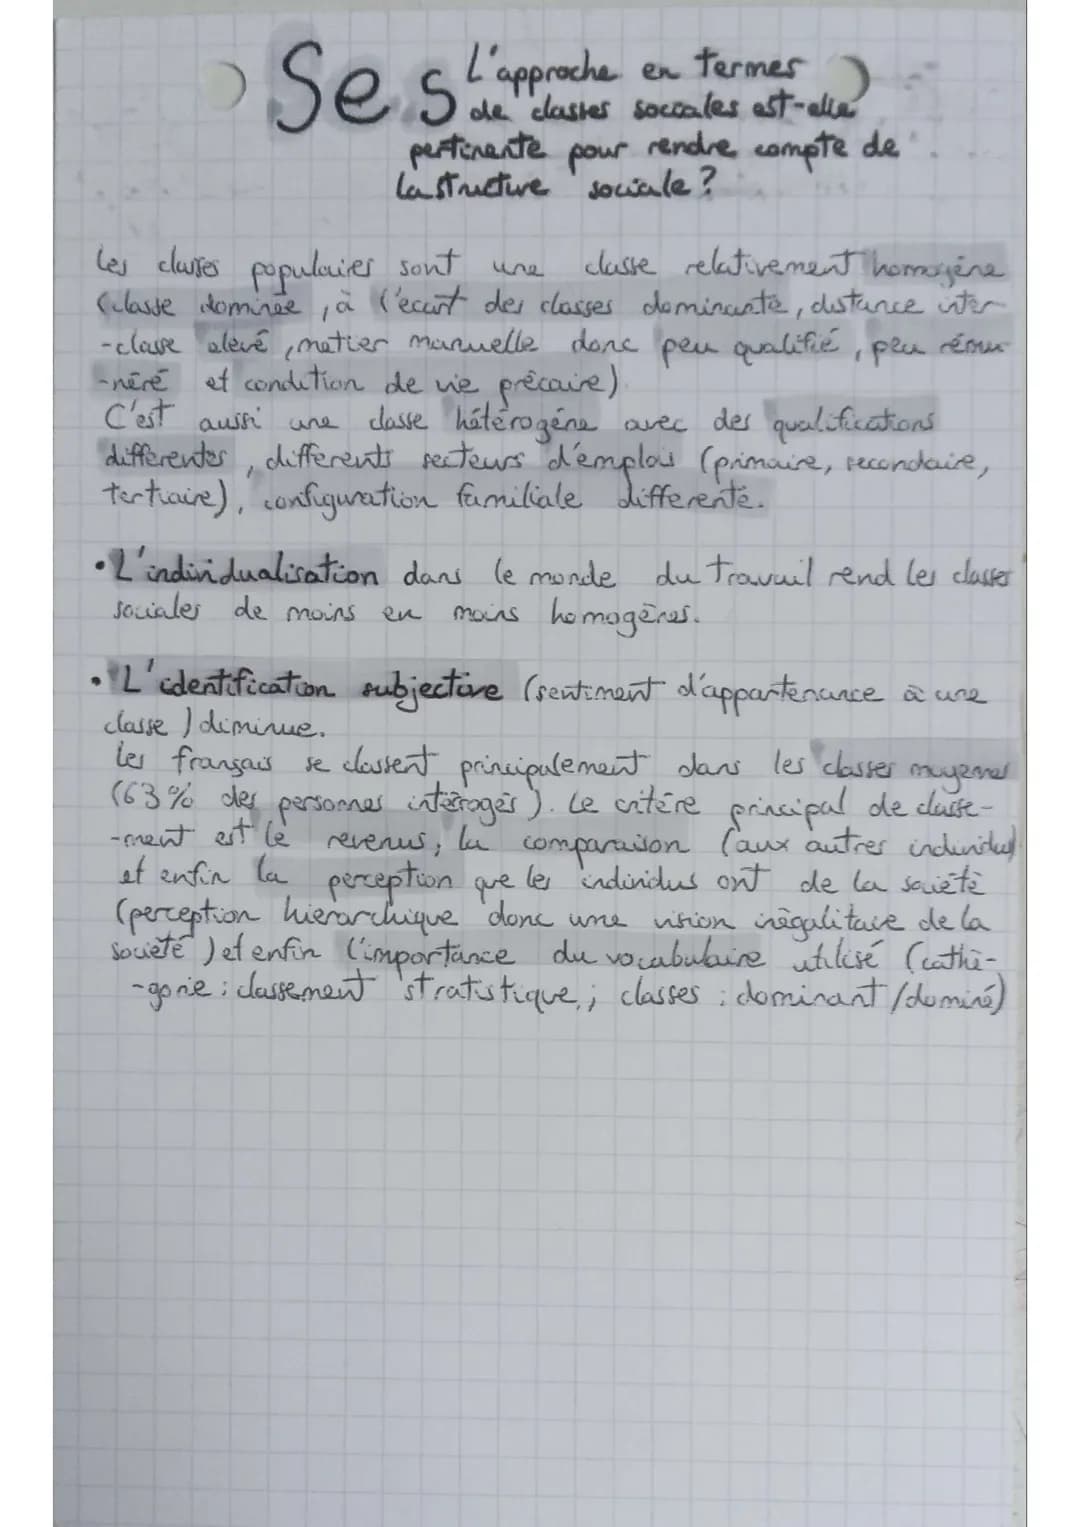 Ses L'approche en termes
de classes sociales est-elle
pertinente pour rendre compte de
la structure sociale ?
Les classes populaires sont une classe relativement homogène
(classe dominée, à l'écart des classes dominante, distance inter-
-classe élevé, métier manuelle donc peu qualifié, peu rému-
-néré et condition de vie précaire)
C'est aussi une classe hétérogène avec des qualifications
différentes, différents secteurs d'emplois (primaire, secondaire,
tertiaire), configuration familiale différente.
• L'individualisation dans le monde du travail rend les classes
sociales de moins en moins homogènes.
• L'identification subjective (sentiment d'appartenance à une
classe) diminue.
Les français se classent principalement dans les classes moyennes
(63% des personnes intérrogés). Le critère principal de classe-
-ment est le revenus, la comparaison (aux autres individus)
et enfin la perception que les individus ont de la société
(perception hiérarchique donc une vision inégalitaire de la
société) et enfin l'importance du vocabulaire utilisé (cathé-
-gorie : classement stratistique ; classes : dominant/dominé)